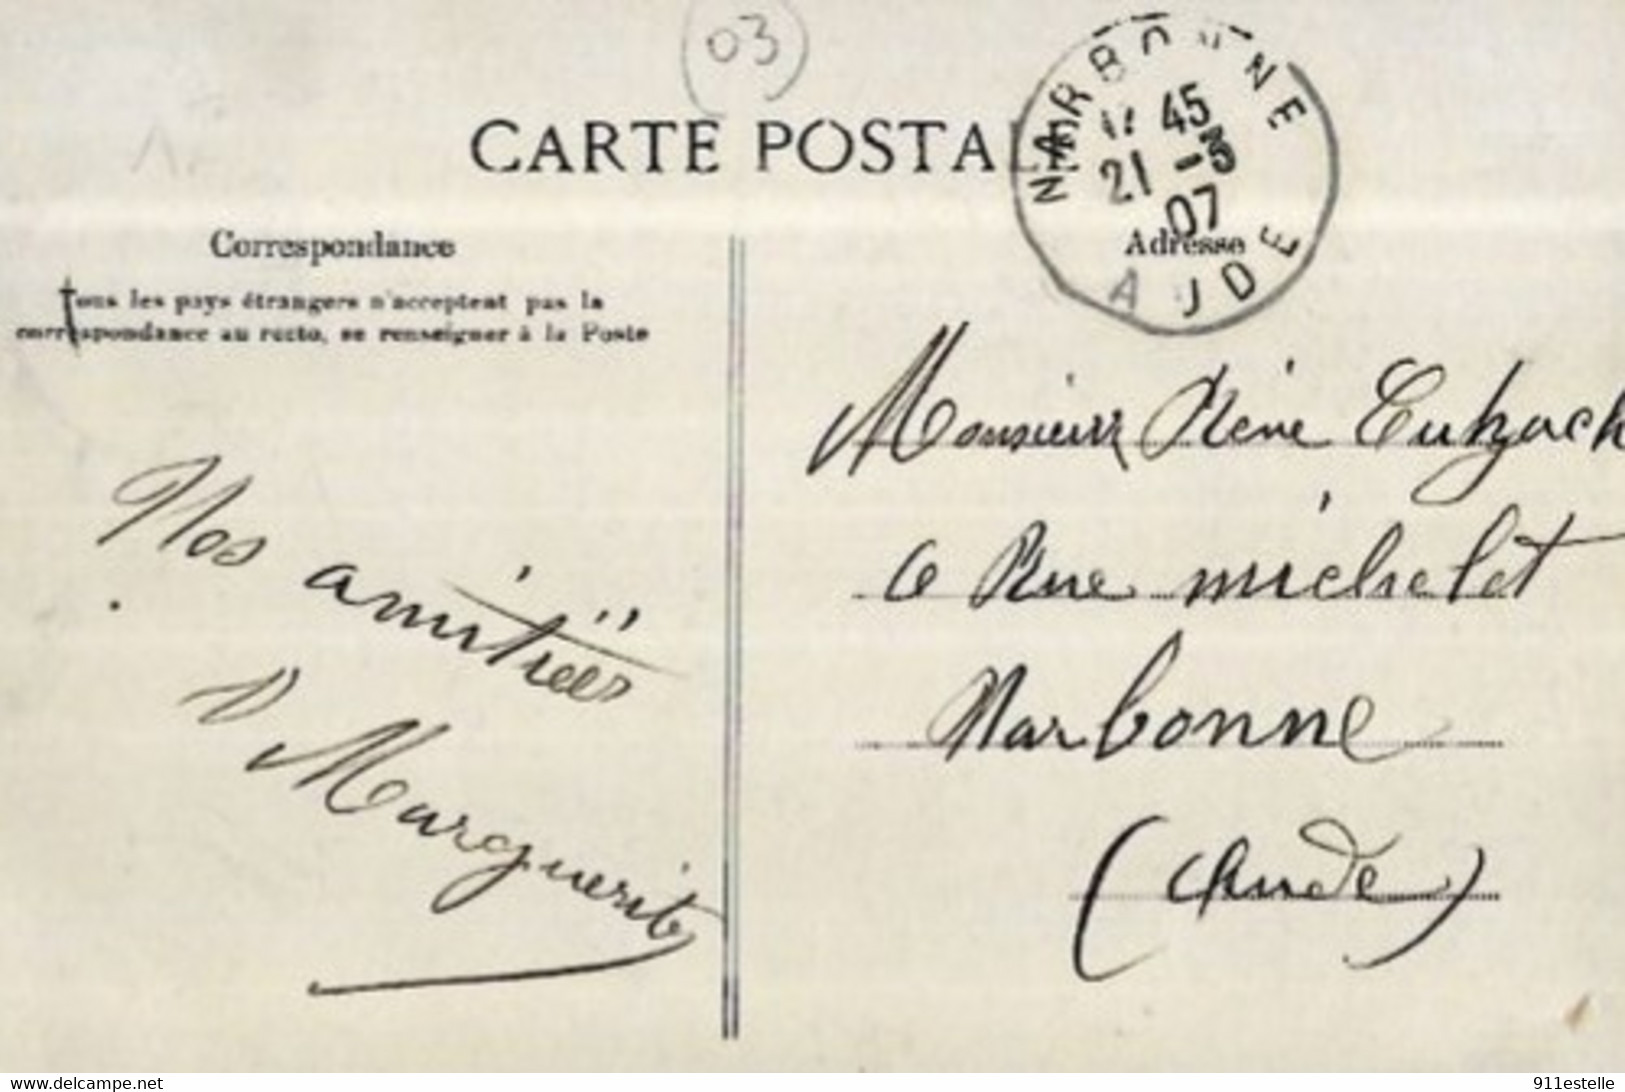 03
CARTE POSTALE
NARBONNE
45
21 -5
07
AUDE
Correspondance
Adresse
Tous les pays étrangers n'acceptent pas la
correspondance au recto, se renseigner à la Poste
Nos amitiés
Marguerite
Monsieur Réné
6 Rue Michelet
Narbonne
(Aude)
delcampe.net
911estelle